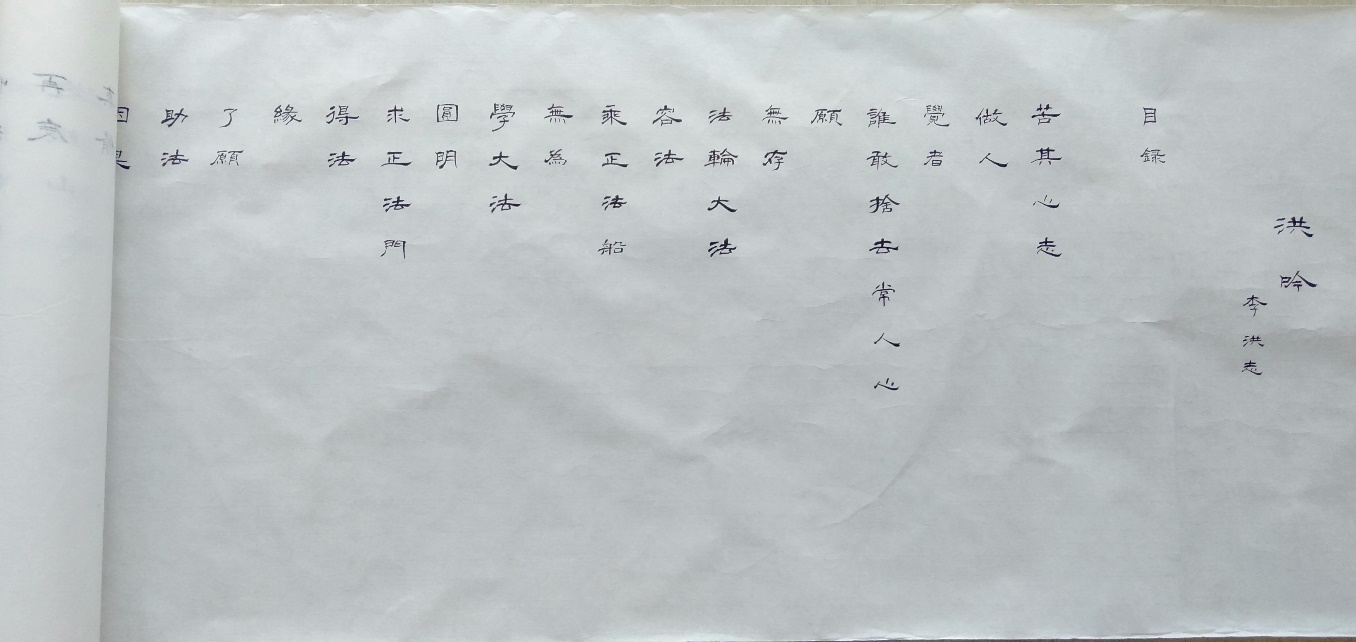 洪吟
李洪志
目録
苦其心志
做人
覺者
誰敢捨去常人心
願
無存
法輪大法
容法
乘正法船
無為
學大法
圓明
求正法門
得法
緣
了願
助法
因果
再度